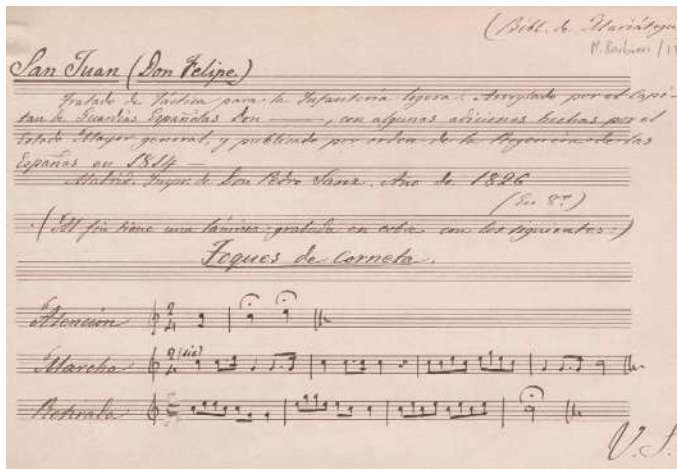 (Bibl. de Mariátegui
M. Barbieri / 1
San Juan (Don Felipe.)
Tratado de Táctica para la Infantería ligera: Arreglado por el Capi-
tan de Guardias Españolas Don ———, con algunas adiciones hechas por el
Estado Mayor general, y publicado por orden de la Regencia de las
Españas en 1814 —
Madrid. Impr. de Don Pedro Sanz. Año de 1826
(En 8º.)
(Al fin tiene una lámina grabada en cobre con los siguientes:)
Toques de Corneta.
Atención
Marcha (sic)
Retirada
V. S.